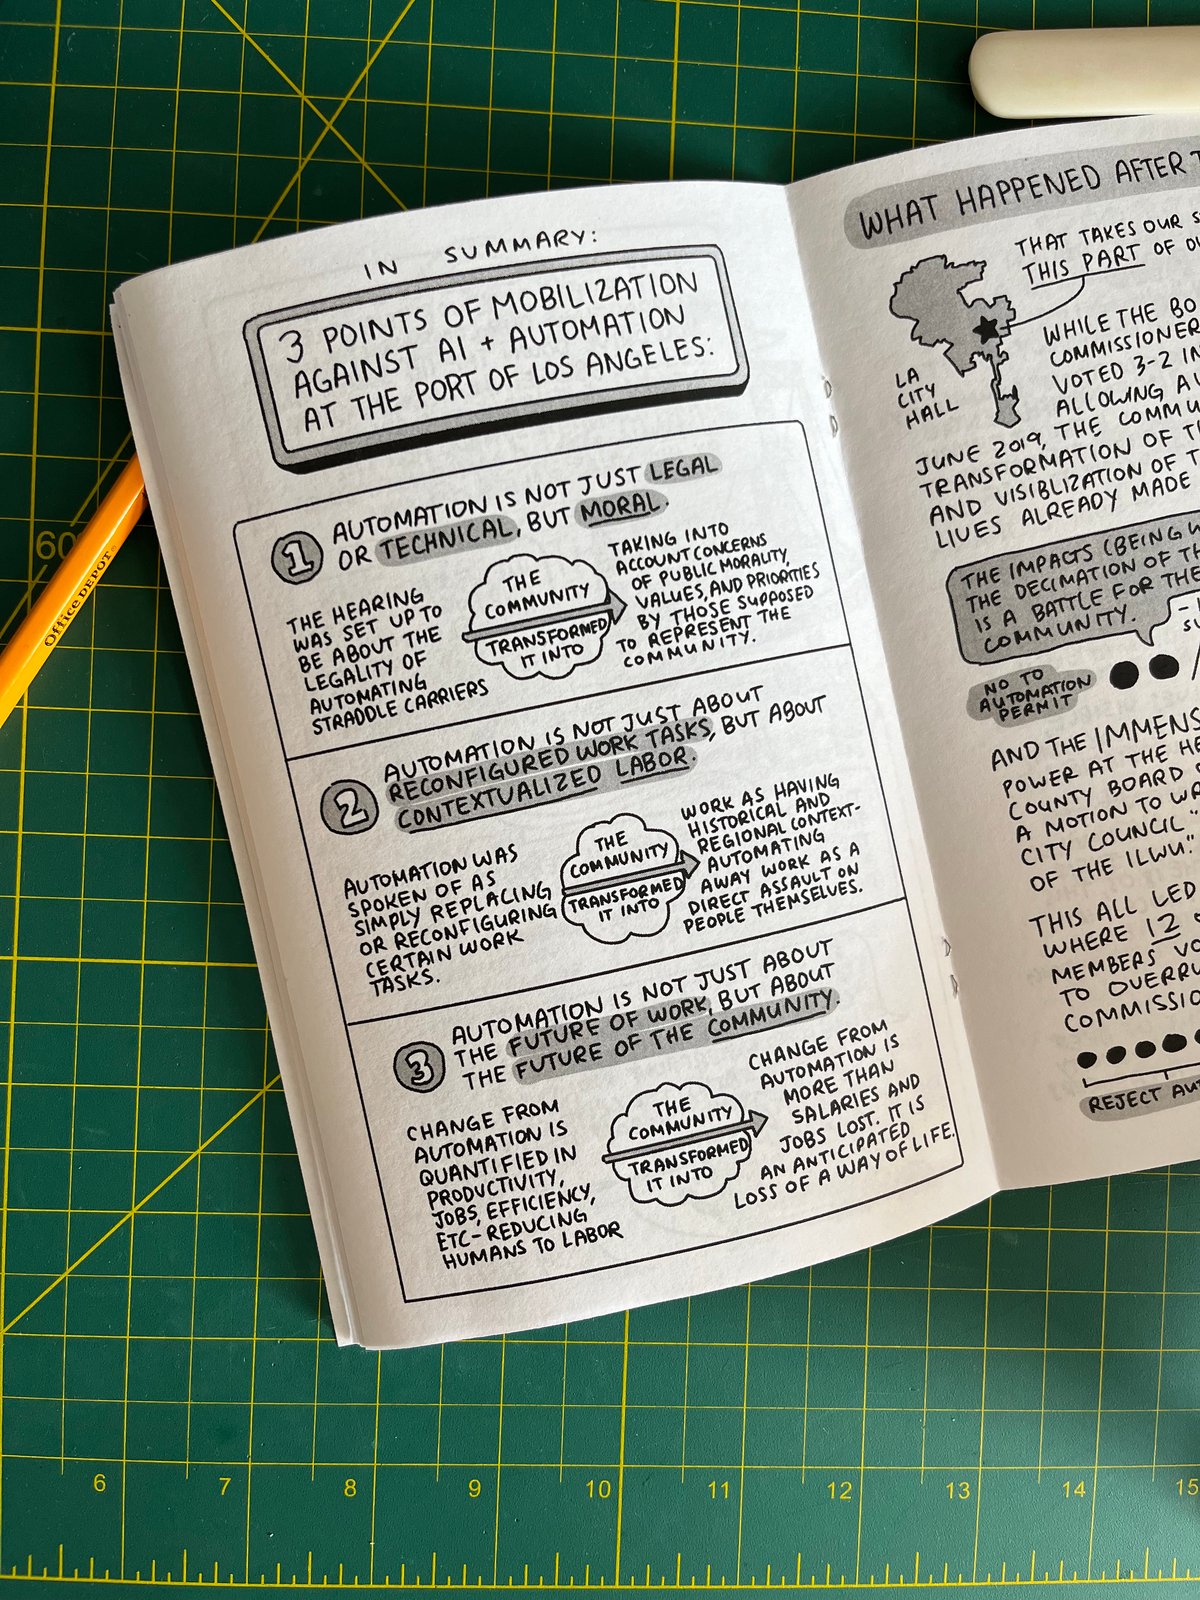 IN SUMMARY:
3 POINTS OF MOBILIZATION
AGAINST AI + AUTOMATION
AT THE PORT OF LOS ANGELES:
1
AUTOMATION IS NOT JUST LEGAL
OR TECHNICAL, BUT MORAL.
THE HEARING
WAS SET UP TO
BE ABOUT THE
LEGALITY OF
AUTOMATING
STRADDLE CARRIERS
THE
COMMUNITY
TRANSFORMED
IT INTO
TAKING INTO
ACCOUNT CONCERNS
OF PUBLIC MORALITY,
VALUES, AND PRIORITIES
BY THOSE SUPPOSED
TO REPRESENT THE
COMMUNITY.
2
AUTOMATION IS NOT JUST ABOUT
RECONFIGURED WORK TASKS, BUT ABOUT
CONTEXTUALIZED LABOR.
AUTOMATION WAS
SPOKEN OF AS
SIMPLY REPLACING
OR RECONFIGURING
CERTAIN WORK
TASKS.
THE
COMMUNITY
TRANSFORMED
IT INTO
WORK AS HAVING
HISTORICAL AND
REGIONAL CONTEXT-
AUTOMATING
AWAY WORK AS A
DIRECT ASSAULT ON
PEOPLE THEMSELVES.
3
AUTOMATION IS NOT JUST ABOUT
THE FUTURE OF WORK, BUT ABOUT
THE FUTURE OF THE COMMUNITY.
CHANGE FROM
AUTOMATION IS
QUANTIFIED IN
PRODUCTIVITY,
JOBS, EFFICIENCY,
ETC- REDUCING
HUMANS TO LABOR
THE
COMMUNITY
TRANSFORMED
IT INTO
CHANGE FROM
AUTOMATION IS
MORE THAN
SALARIES AND
JOBS LOST. IT IS
AN ANTICIPATED
LOSS OF A WAY OF LIFE.
WHAT HAPPENED AFTER
THAT TAKES OUR
THIS PART OF
LA
CITY
HALL
WHILE THE
COMMISSIONER
VOTED 3-2
ALLOWING
JUNE 2019, THE
TRANSFORMATION OF
AND VISIBLIZATION OF
LIVES ALREADY MADE
THE IMPACTS (BEING
THE DECIMATION OF
IS A BATTLE FOR THE
COMMUNITY.
NO TO
AUTOMATION
PERMIT
AND THE
POWER AT THE
COUNTY BOARD
A MOTION TO
CITY COUNCIL
OF THE ILWU.
THIS ALL LED
WHERE 12
MEMBERS
TO
REJECT
Office DEPOT
60
6 7 8 9 10 11 12 13 14 15